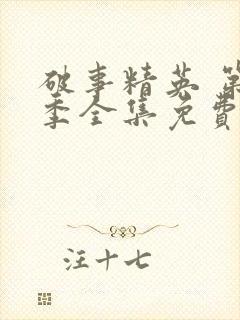 破事精英 第
季全集免费
汪十七